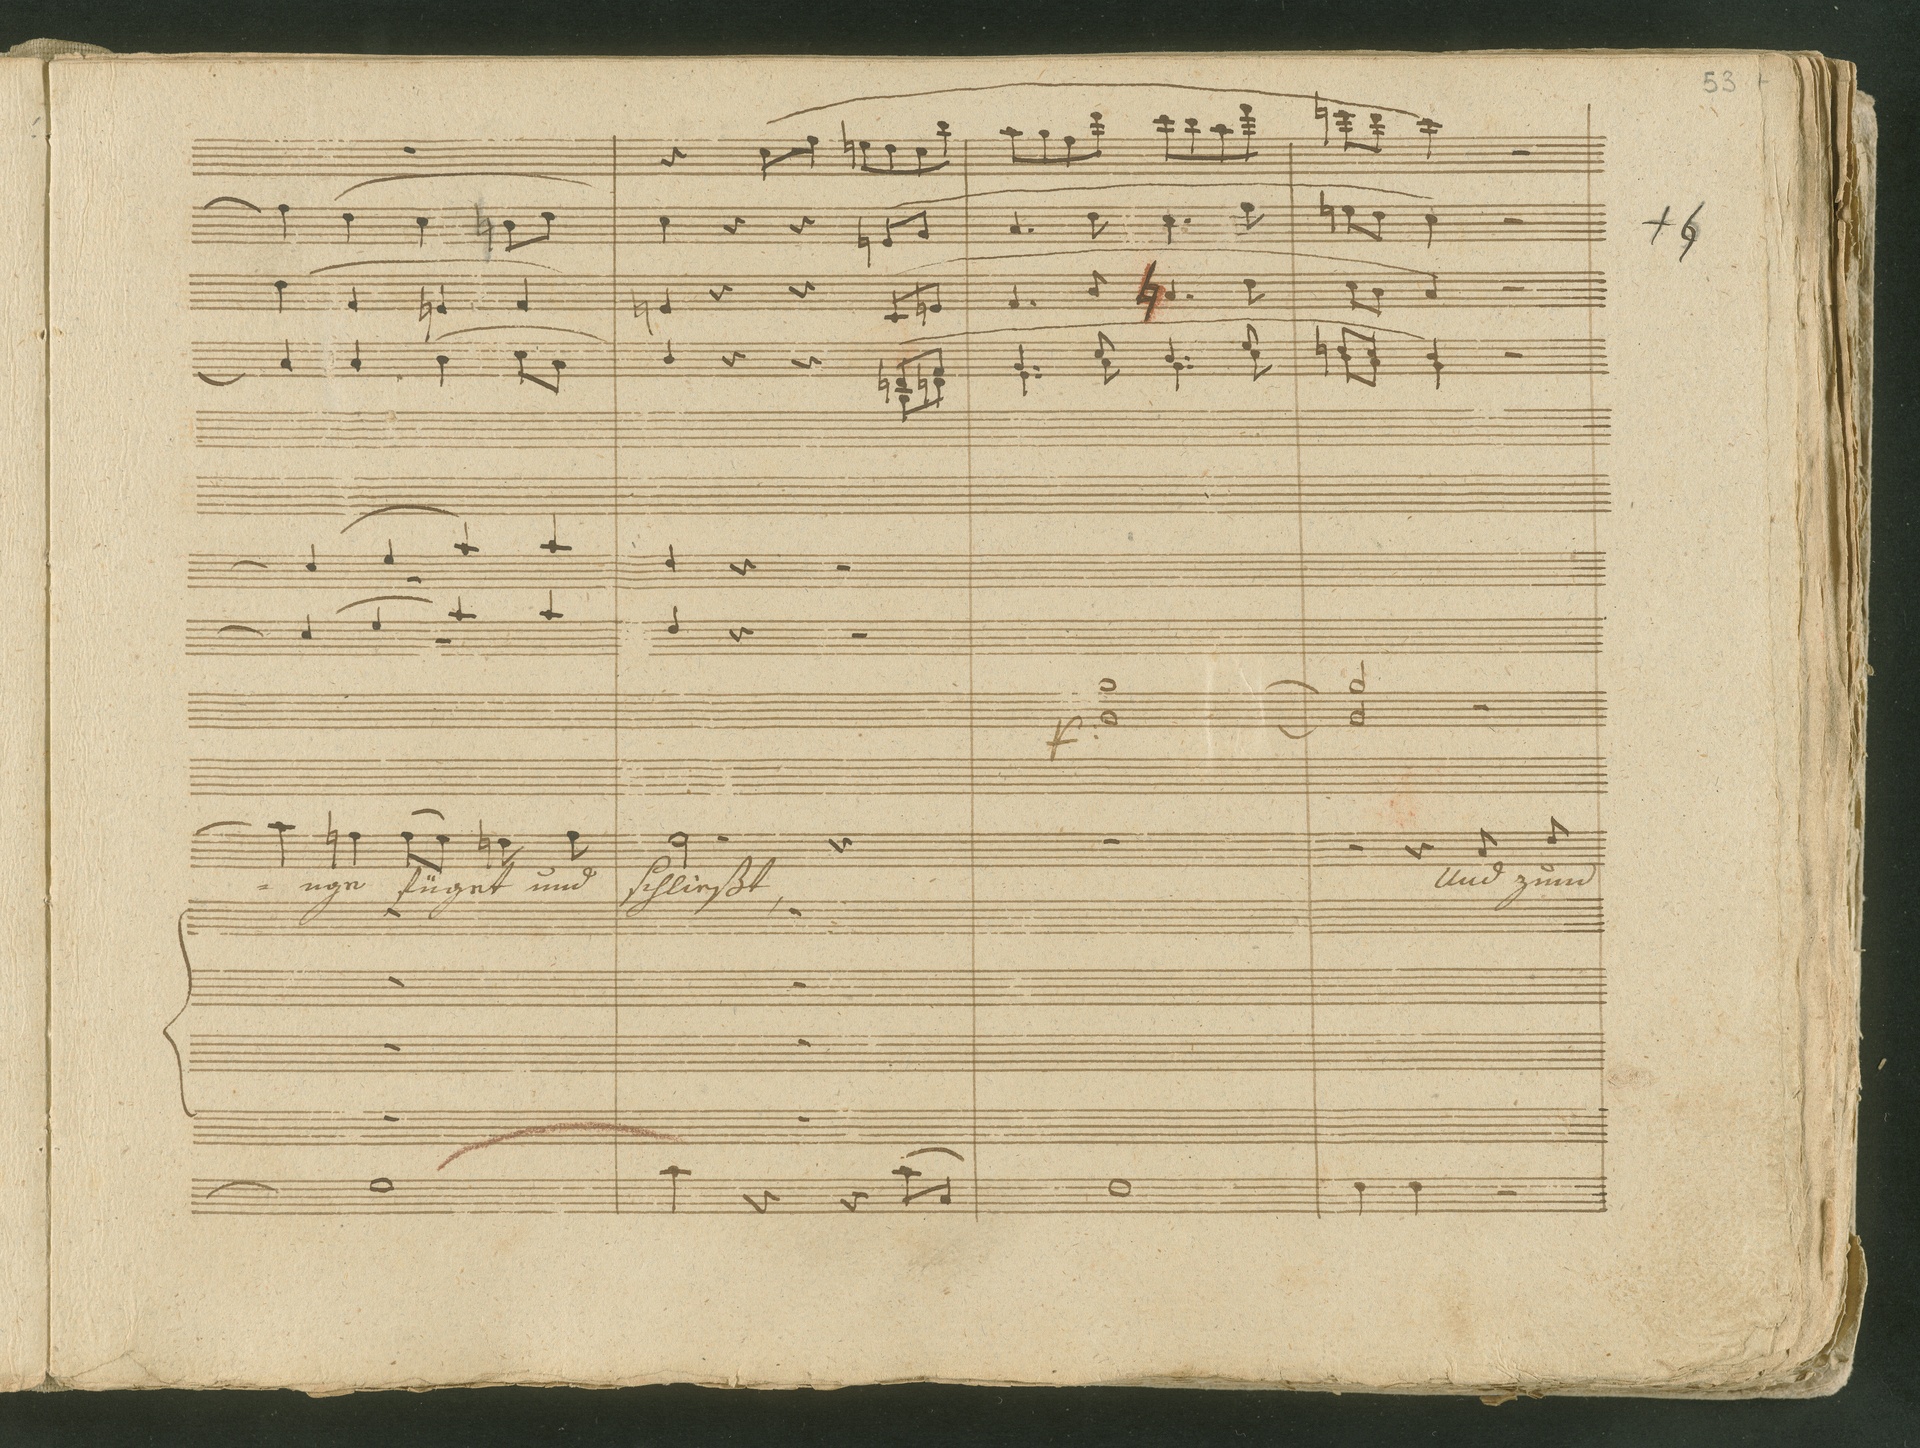 53
+6
- nge füget und schließt, Und zum